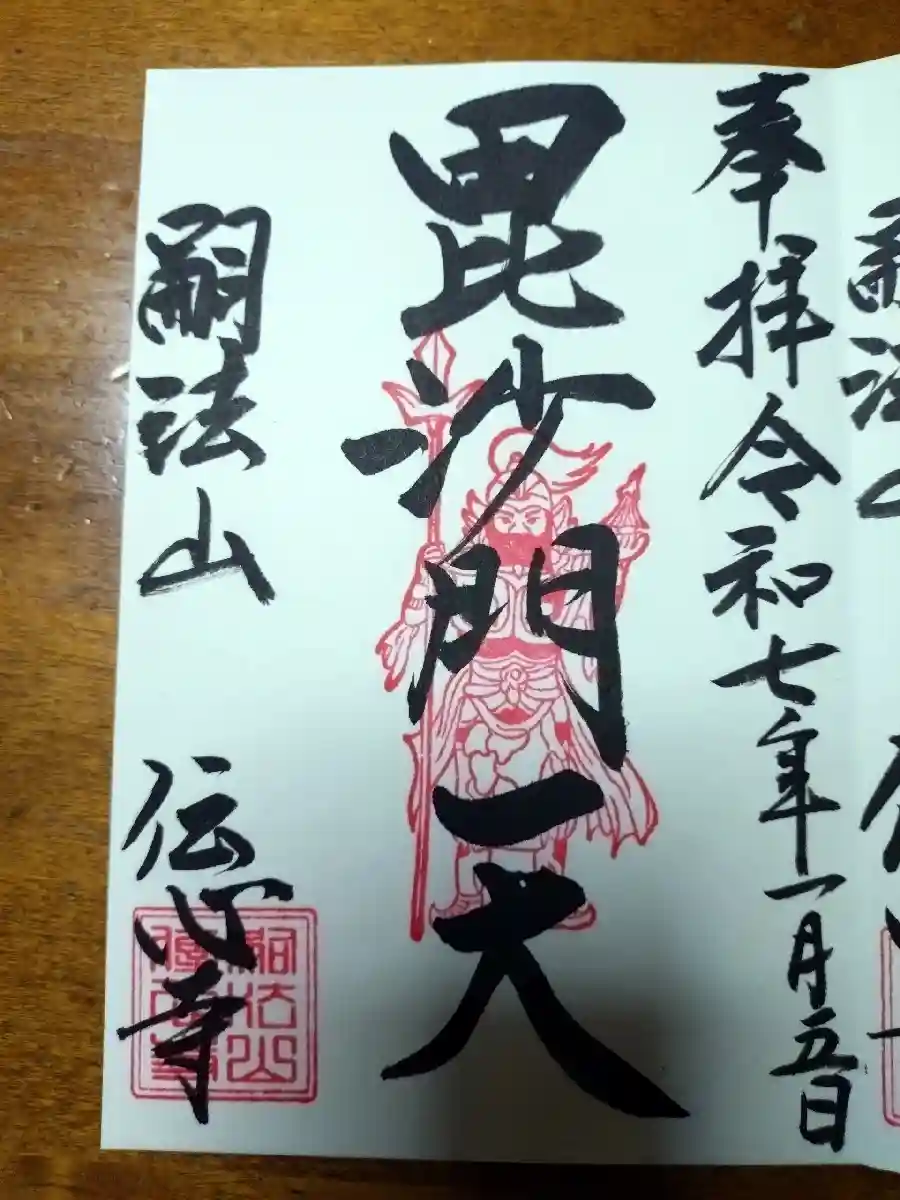 奉拝令和七年一月五日
毘沙門天
嗣法山 伝心寺
嗣法山
傳心寺